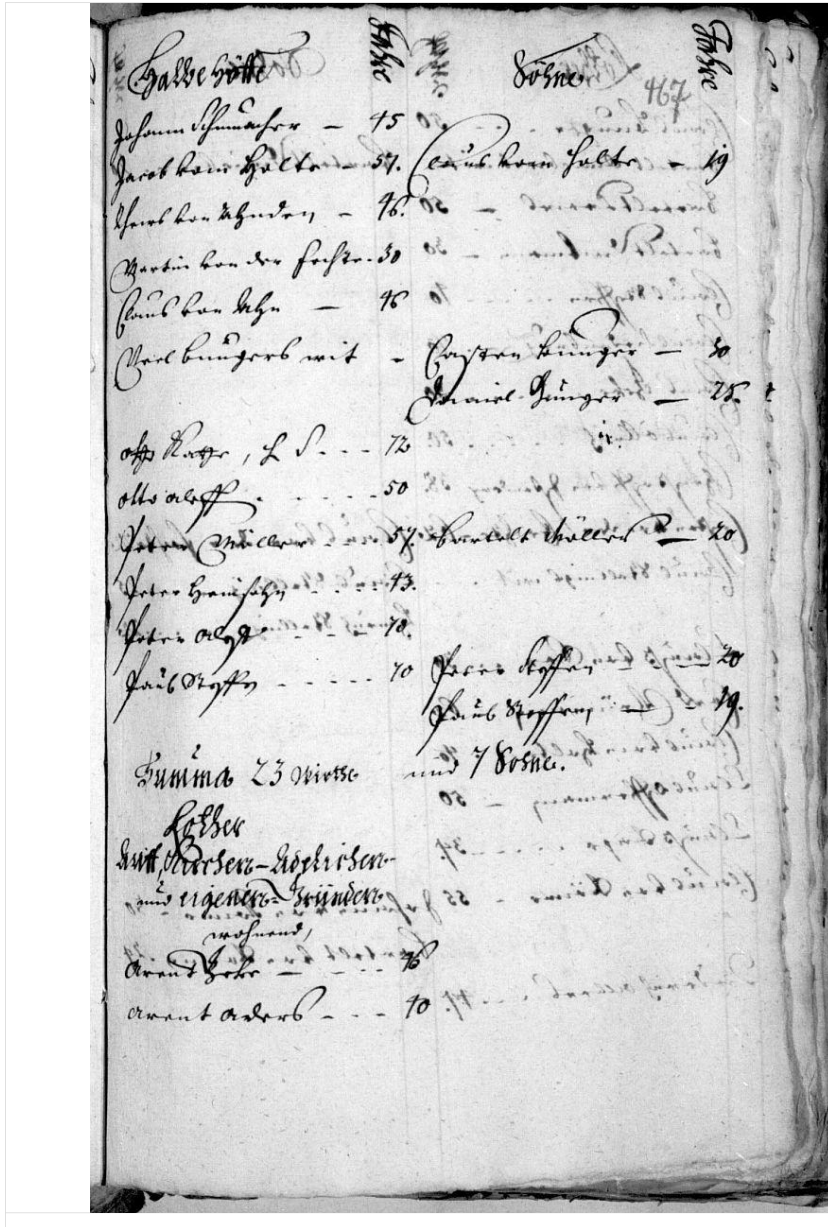 Halbe Höffe Jahre Söhne Jahre
467
Johann Schumacher — 45
Jacob vom Holte - 57. Claus vom Holte - 19
von Ahnden - 46.
Martin von der Fechte - 30
Claus von Ahn — 46
bungers wit - Casten bunger — 30
Daniel Bunger — 25.
Otto Katte, - - - 72
otto aleff . - - - - 50
Peter Müller - - - 57. bartelt Müller — 20
Peter Heinsohn - - - - 43.
Peter - - - 78.
Paus Steffen - - - - - 70 Peter Steffen - - - 20
Paus Steffens — - 19.
Summa 23 Wirthe und 7 Söhne.
Köther
Auff, Kirchen- Adelichen-
und eigenen- Gründen
wohnend,
Arent — - - - 46
Arent aders - - - 40